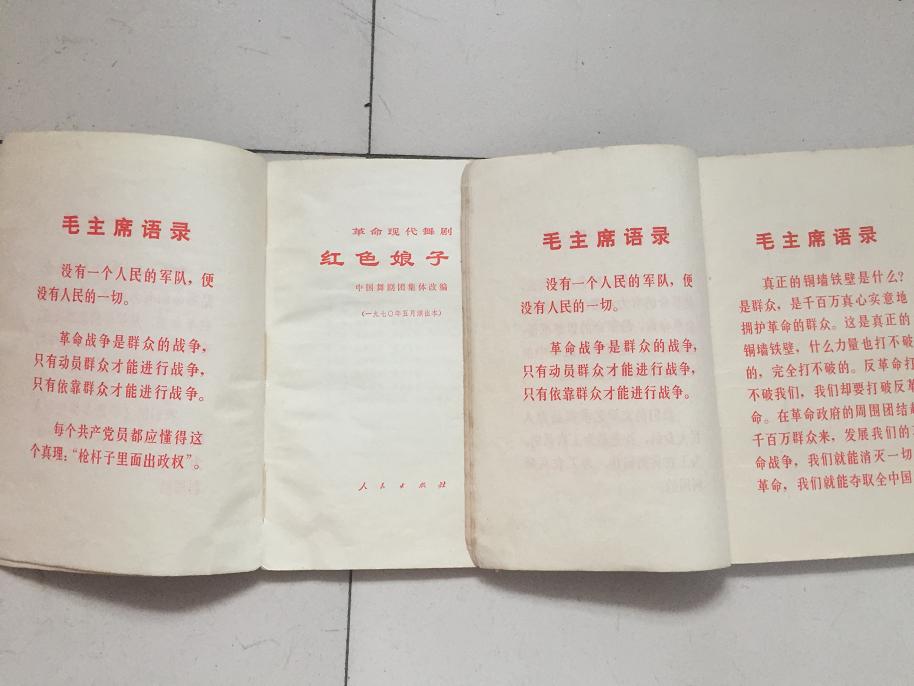 毛主席语录
没有一个人民的军队，便
没有人民的一切。
革命战争是群众的战争，
只有动员群众才能进行战争，
只有依靠群众才能进行战争。
每个共产党员都应懂得这
个真理：“枪杆子里面出政权”。
革命现代舞剧
红色娘子
中国舞剧团集体改编
（一九七〇年五月演出本）
人民出版社
毛主席语录
没有一个人民的军队，便
没有人民的一切。
革命战争是群众的战争，
只有动员群众才能进行战争，
只有依靠群众才能进行战争。
毛主席语录
真正的铜墙铁壁是什么？
是群众，是千百万真心实意地
拥护革命的群众。这是真正的
铜墙铁壁，什么力量也打不破
的，完全打不破的。反革命打
不破我们，我们却要打破反革
命。在革命政府的周围团结起
千百万群众来，发展我们的
命战争，我们就能消灭一切
革命，我们就能夺取全中国